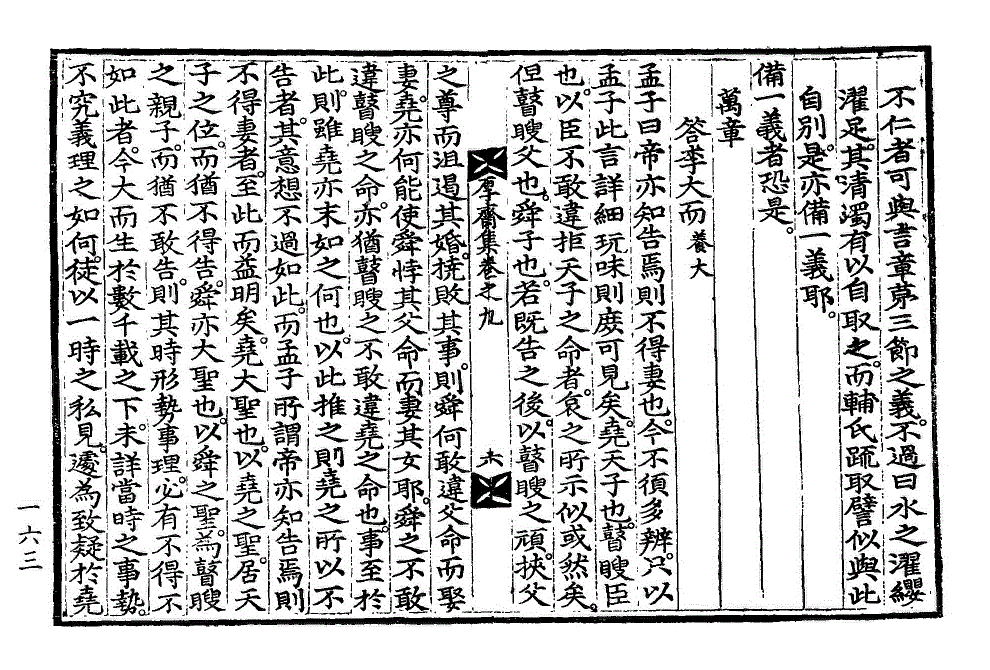 不仁者可與言章苐三節之義。不過曰水之濯纓
濯足。其清濁有以自取之。而輔氏䟽取譬似與此
自别。是亦備一義耶。
備一義者恐是。
萬章
答李大而 養大
孟子曰帝亦知告焉則不得妻也。今不湏多辨。只以
孟子此言詳細玩味則庶可見矣。堯天子也。瞽瞍臣
也。以臣不敢違拒天子之命者。哀之所示似或然矣。
但瞽瞍父也。舜子也。若旣告之後。以瞽瞍之頑。挾父
厚齋集卷之九
之尊而沮遏其婚。撓敗其事。則舜何敢違父命而娶
妻。堯亦何能使舜悖其父命而妻其女耶。舜之不敢
違瞽瞍之命。亦猶瞽瞍之不敢違堯之命也。事至於
此。則雖堯亦末如之何也。以此推之則堯之所以不
告者。其意想不過如此。而孟子所謂帝亦知告焉則
不得妻者。至此而益明矣。堯大聖也。以堯之聖。居天
子之位。而猶不得告。舜亦大聖也。以舜之聖。爲瞽瞍
之親子。而猶不敢告。則其時形勢事理。必有不得不
如此者。今大而生於數千載之下。未詳當時之事勢。
不究義理之如何。徒以一時之私見。遽為致疑於堯
一六三